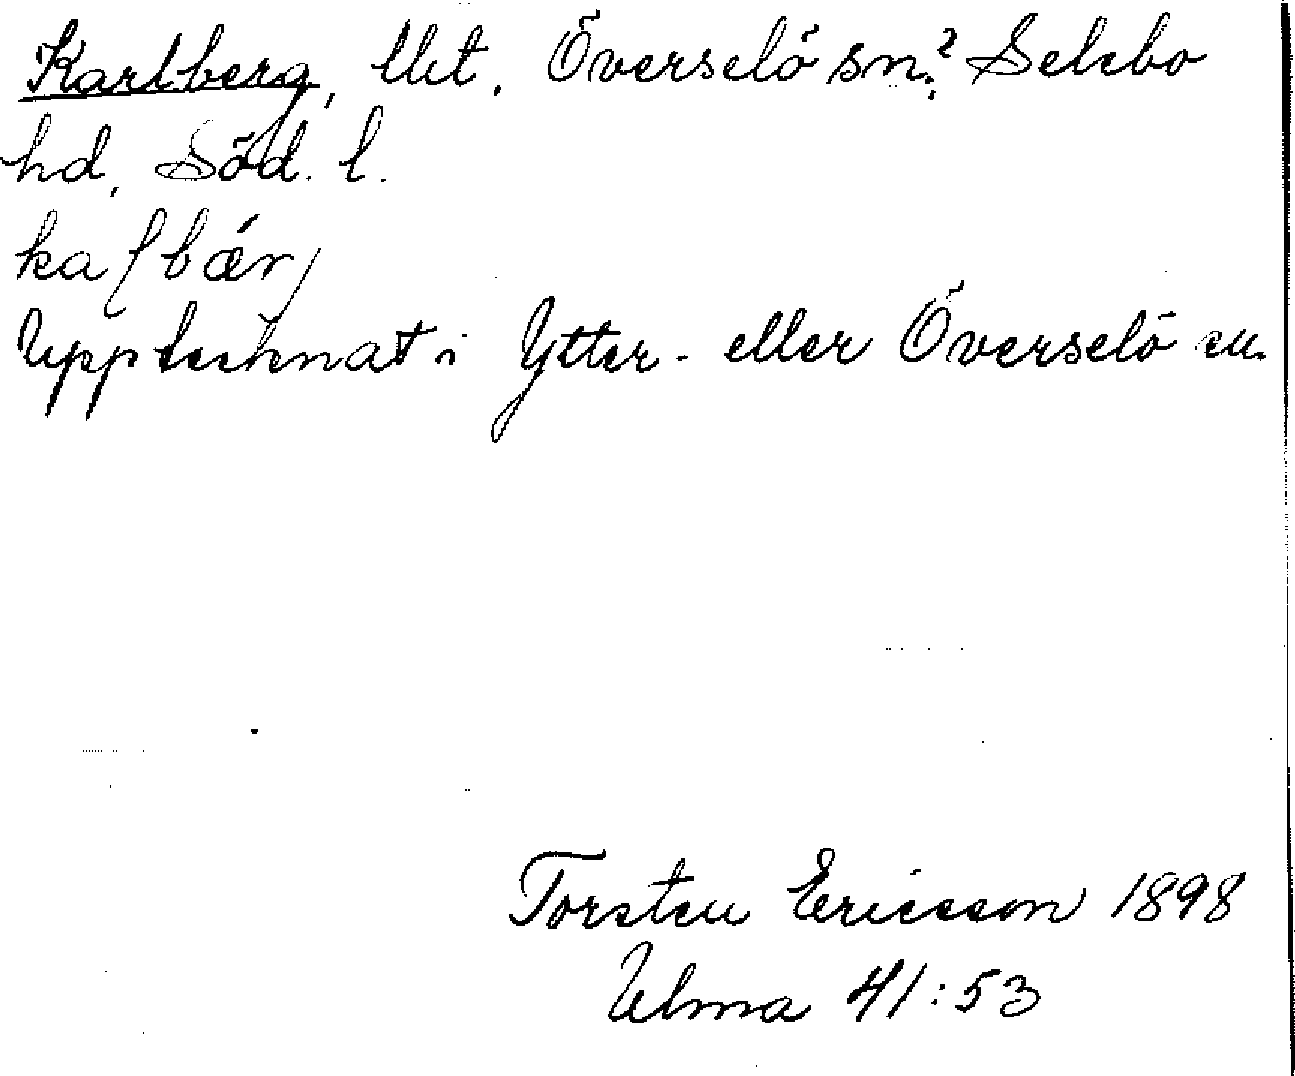 Karlberg, Utt. Överselö sn? Selebo
hd, Söd. l.
kaſbǽr/
Upptecknat i Ytter- eller Överselö sn.
Torsten Ericsson 1898
Ulma 41:53